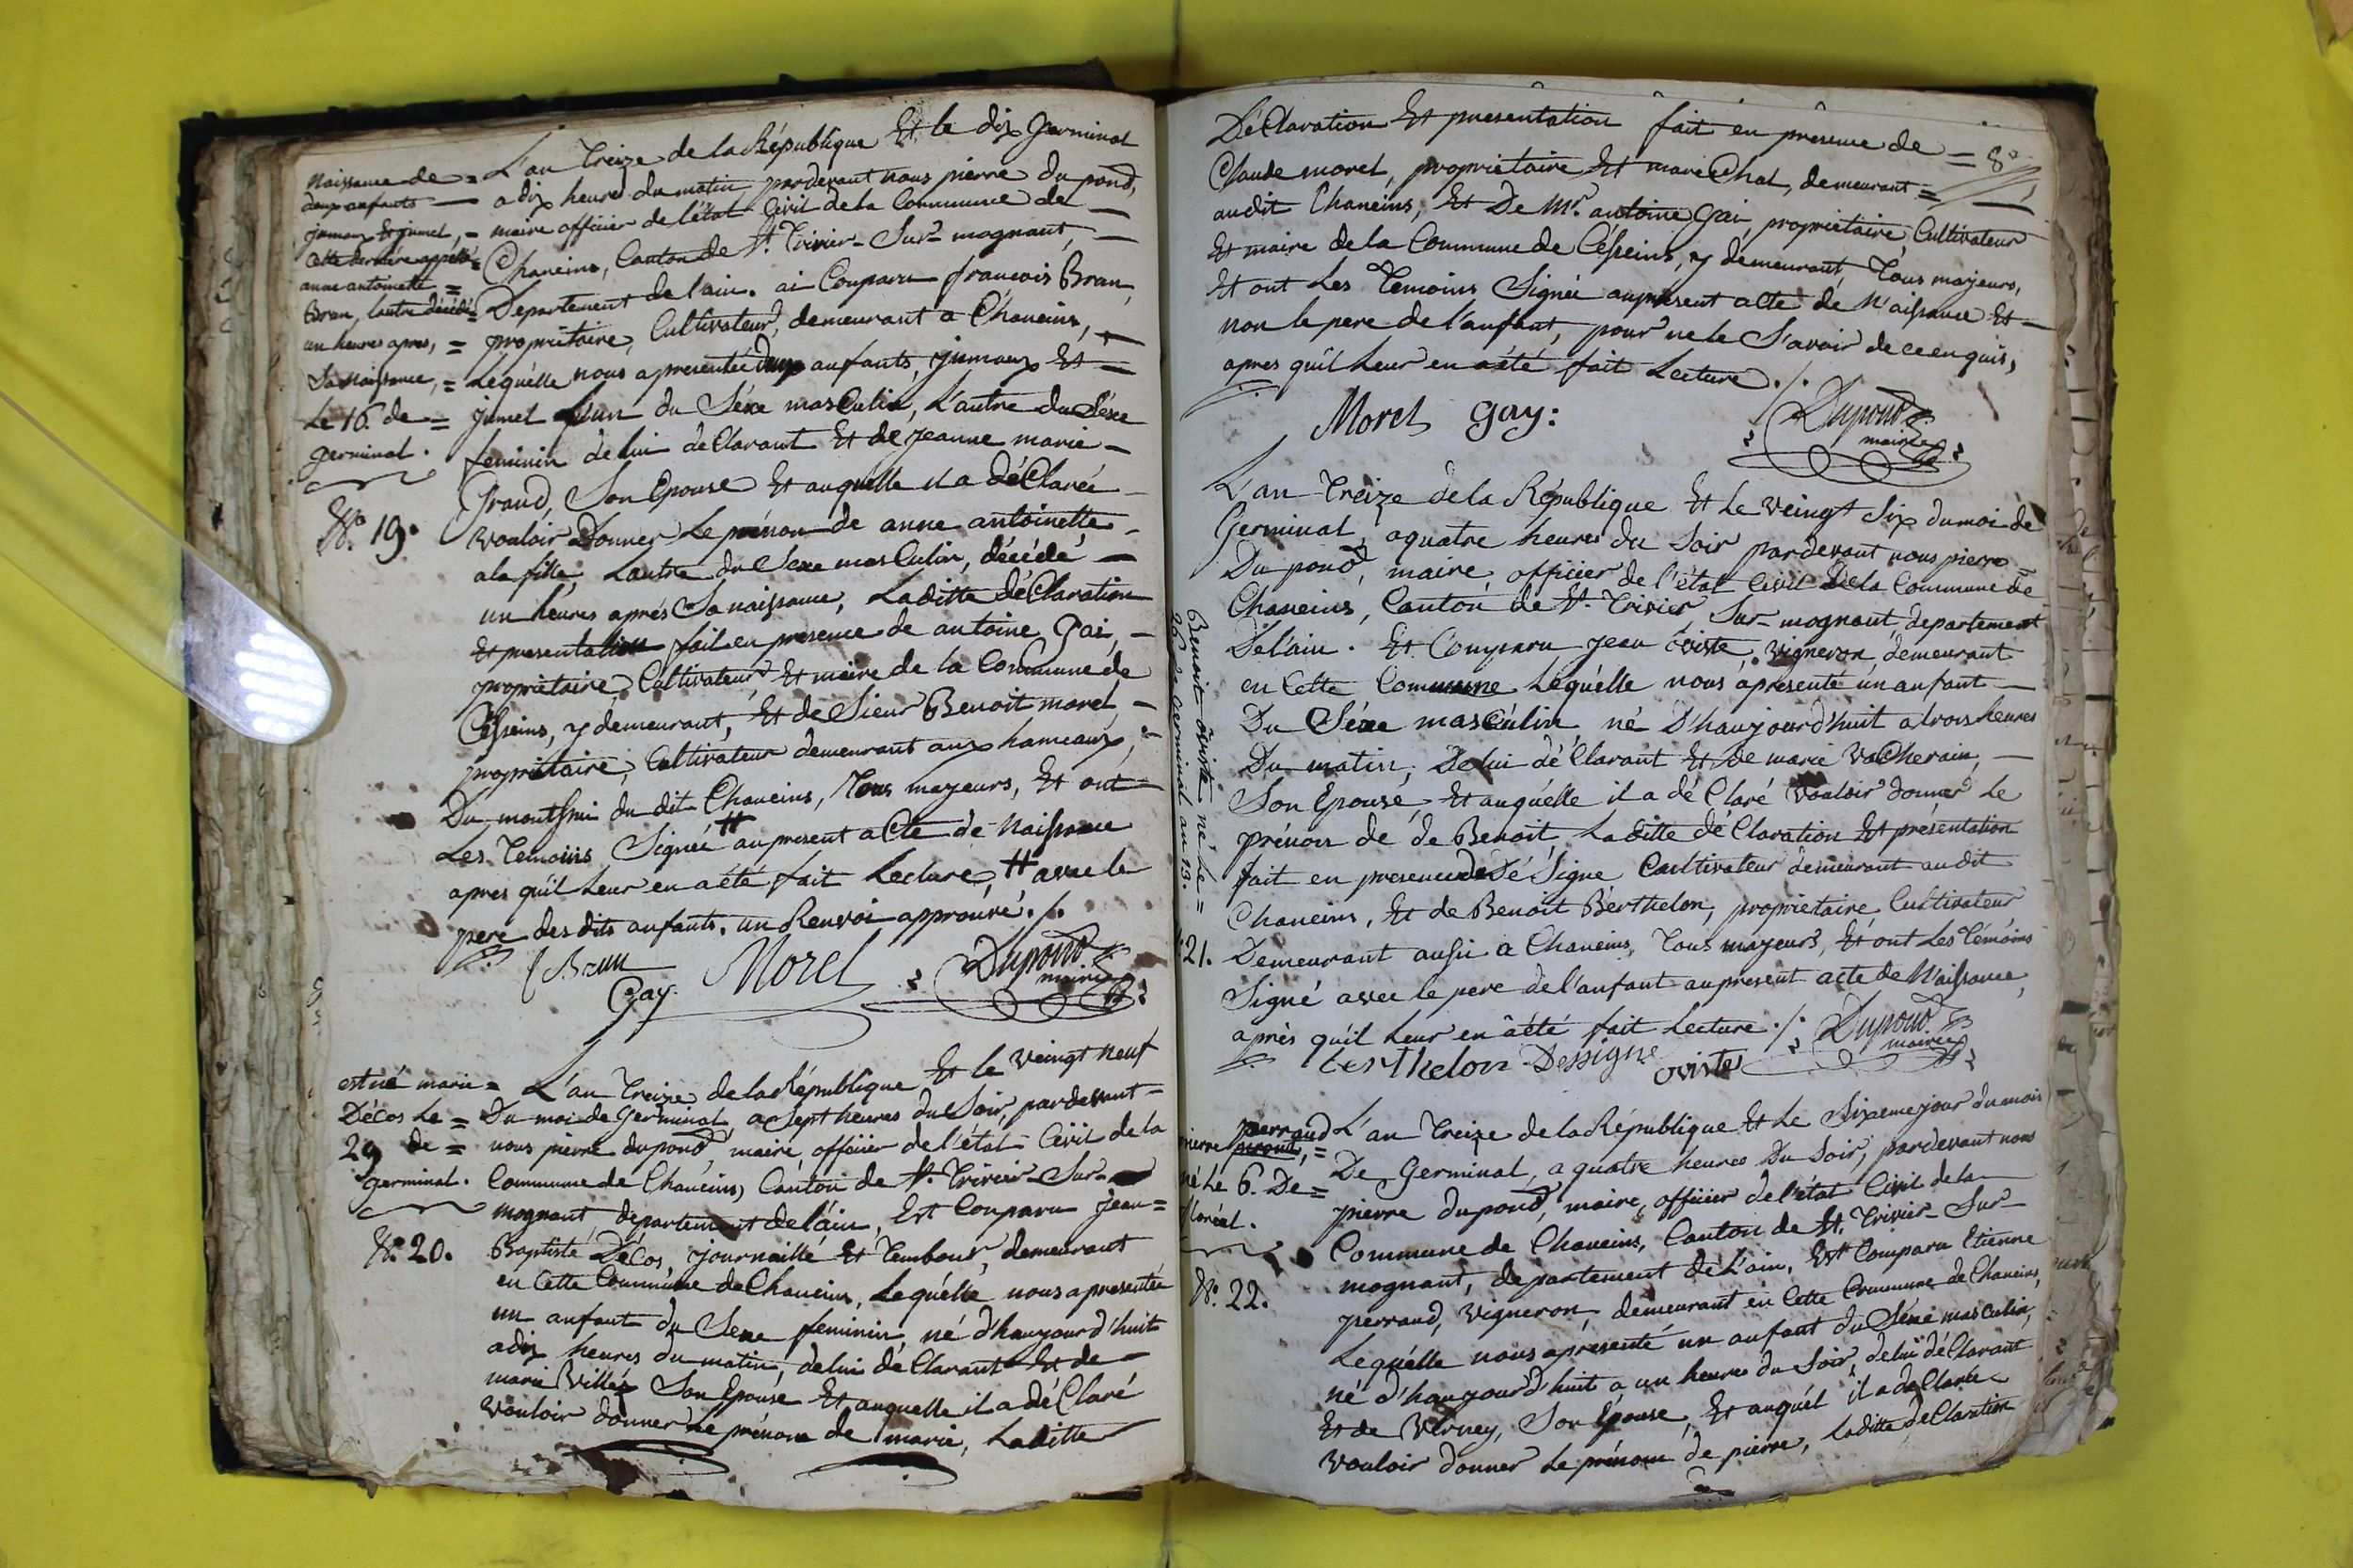 Naissance de =
deux anfants —
jumeaux Et jumel, =
Cette derniere appellé =
anne antoinette =
Bran, lautre décédé =
un heures apres, =
Sa Naissance, =
Le 16. de =
germinal.
N.o 19.
L'an Treize de la République Et le dix germinal
a dix heures du matin, pardevant nous pierre du pond,
maire officier de l'état Civil de la Commune de —
Chaneins, Canton de St. Trivier-Sur-mognant, —
Departement de l'ain. ai Conparu francois Bran,
propriétaire, Cultivateur, demeurant a Chaneins, —
Lequélle nous apresentée deux anfants, jumeaux Et =
jumel Lun du Séxe masCulin, L'autre du Séxe
feminin de lui deClarant Et de jeanne marie —
Grand, Son Epouse Et auquelle il a déClarée —
vouloir Donner Le prénom de anne antoinette —
ala fille, Lautre du Sexe masCulin, décédé —
un heures aprés Sa naissance, Laditte déClaration
Et presentation fait en presence de antoine Gai, —
propriétaire Cultivateur Et maire de la Commune de
Cesseins, y demeurant, Et de Sieur Benoit morel —
propriétaire, Cultivateur demeurant aux hameaux,
Du du dit Chaneins, Tous mayeurs, Et ont —
Les Temoins Signée # au present aCte de Naissance
apres qu'il Leur en aété fait Lecture, # avec le
pere des dits anfants. un Renvoi approuvé ./.
Brun
Gay. Morel Dupond
maire
est né marie =
Décos Le =
29 de =
germinal.
N.o 20.
L'an Treize de la République Et le veingt neuf
Du moi de Germinal, a Sept heures du Soir, pardevant —
nous pierre dupond maire, officier de l'état Civil de la
Commune de Chaneins, Canton de St. Trivier-Sur-
mognant, département de láin, Est Conparu jean =
Baptiste Décos, journaillé Et Tembour, demeurant
en Cette Commune de Chaneins, Lequélle nous apresentée
un anfant du Sexe feminin, né d'haujourd'huit
adix heures du matin, de lui déClarant Et de —
marie Villéz Son Epouse Et auquelle il a déClaré
vouloir donner Le prénom de marie, Laditte
DéClaration Et presentation fait en presence de = 8
Claude morel, propriétaire Et mareChal, demeurant =
audit Chaneins, Et De Mr. antoine Gai, propriétaire, Cultivateur
Et maire de la Commune de Césseins, y demeurant, Tous mayeurs,
Et ont Les Temoins Signée aupresent aCte de N'aissance Et —
non le pere de l'anfant, pour ne le S'avoir de ce enquis,
apres qu'il Leur en aété fait Lecture ./.
Morel gay: Dupond
maire
Benoit oviste né Le =
26 de Germinal an 13.
21.
L'an Treize de la République Et Le veingt Six du moi de
Germinal, a quatre heures du Soir pardevant nous pierre =
Du pond, maire, officier de l'état Civil Dela Commune de
Chaneins, Canton de St. Trivier, Sur-mognant, departement
De l'ain. Et Comparu jean oviste, vigneron, demeurant
en Cette Commune Lequélle nous apresenté un anfant —
Du Séxe masCúlin, né D'haujourd'huit a trois heures
Du matin, De lui déClarant Et de marie vaCherain, —
Son Epouse, Et auquélle il a déClaré vouloir donner Le
prénom de de Benoit, Laditte déClaration Et présentation
fait en presence de Dé Signe Cultivateur demeurant audit
Chaneins, Et de Benoit Bérthelon, propriétaire Cultivateur
Demeurant aussi a Chaneins, Tous mayeurs, Et ont Les Témoins
Signé avec le pere de l'anfant aupresent acte de N'aissance,
après qu'il Leur en àété fait Lecture ./. Dupond
berthelon Dessigne ovistes maire
perraud
pierre peroud, =
né Le 6. De =
floréal.
N.o 22.
L'an Treize de la République Et Le Sixeme jour du mois
De Germinal, a quatre heures Du Soir, pardevant nous
pierre dupond, maire, officier de l'état Civil de la
Commune de Chaneins, Canton de St. Trivier-Sur-
mognant, departement de L'ain, Est Comparu Etienne
perraud, vigneron, demeurant en Cette Commune de Chaneins,
Lequélle nous apresenté un anfant du Séxe masculin,
né d'haujourd'huit a un heures du Soir, de lui déClarant
Et de Verney, Son Epouse, Et auquél il a déClarée
vouloir donner Le prénom de pierre, Laditte déClaration